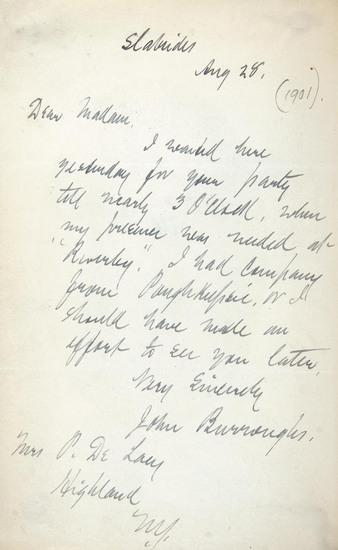 Slabsides
Aug 28.
(1901).
Dear Madam,
I waited here
yesterday for your party
till nearly 3 O'Clock, when
my presence was needed at
"Riverby". I had company
from Poughkeepsie, or I
should have made an
effort to see you later.
Very Sincerely
John Burroughs.
Mrs P. De Lacy
Highland
N.Y.